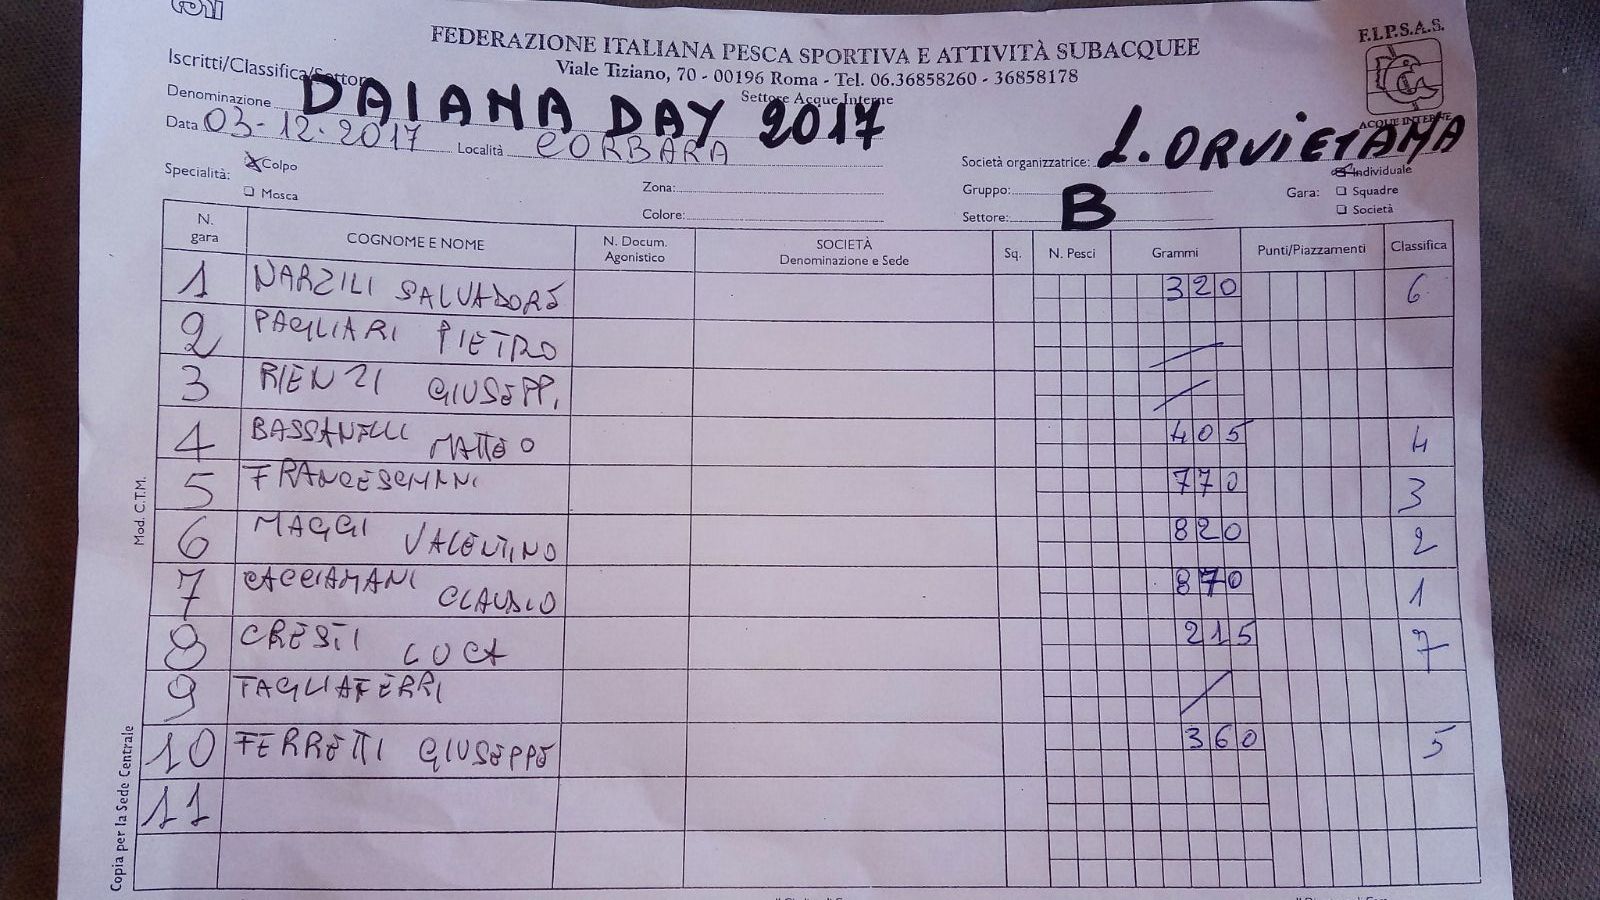 FEDERAZIONE ITALIANA PESCA SPORTIVA E ATTIVITÀ SUBACQUEE
F.I.P.S.A.S.
Viale Tiziano, 70 - 00196 Roma - Tel. 06.36858260 - 36858178
Iscritti/Classifica/Settore
Settore Acque Interne
Denominazione DAIANA DAY 2017
ACQUE INTERNE
Data 03-12-2017 Località CORBARA
Società organizzatrice: L. ORVIETANA
Specialità: Colpo
Mosca
Zona:
Colore:
Gruppo:
Settore: B
Gara: Individuale
Squadre
Società
N. gara COGNOME E NOME N. Docum. Agonistico SOCIETÀ Denominazione e Sede Sq. N. Pesci Grammi Punti/Piazzamenti Classifica
1 NARZILI SALVADORE 320 6
2 PAGLIARI PIETRO /
3 RIENZI GIUSEPP. /
4 BASSANELLI MATTEO 405 4
5 FRANCESCHINI 770 3
6 MAGGI VALENTINO 820 2
7 CACCIAMANI CLAUDIO 870 1
8 CRESTI LUCA 215 7
9 TAGLIAFERRI /
10 FERRETTI GIUSEPPE 360 5
11
Mod. C.T.M.
Copia per la Sede Centrale